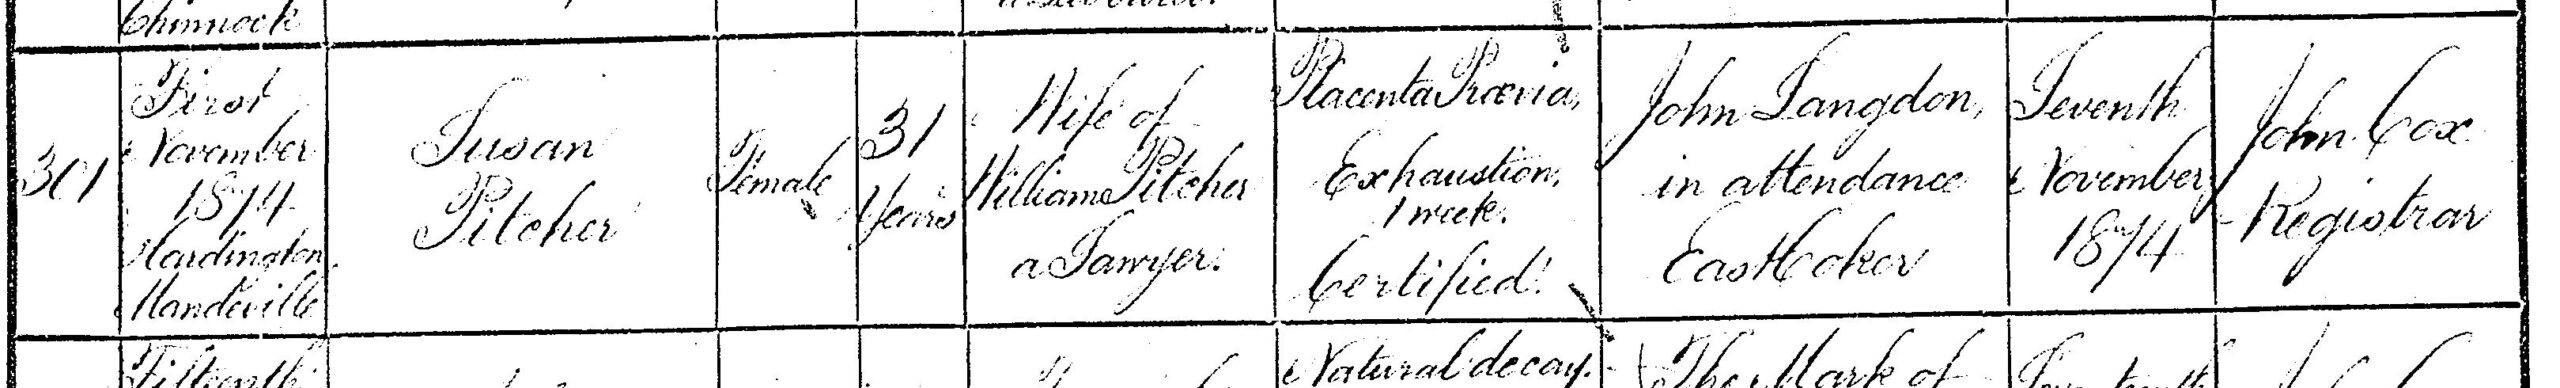 Chinnock
301
First
November
1874
Hardington
Mandeville
Susan
Pitcher
Female
31
Years
Wife of
William Pitcher
a Sawyer.
Placenta Prævia,
Exhaustion,
1 week.
Certified.
John Langdon,
in attendance
East Coker
Seventh
November
1874
John Cox
Registrar
Fifteenth
Natural decay.
The Mark of